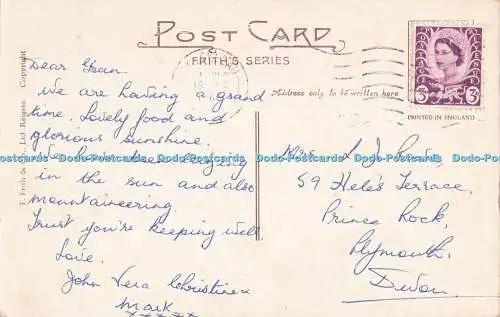 POST CARD
FRITH'S SERIES
Address only to be written here
PRINTED IN ENGLAND
3D 3D
F. Frith & Co., Ltd. Reigate. Copyright
Dear Gran.
We are having a grand
time. Lovely food and
glorious sunshine.
We have been lazing
in the sun and also
mountaineering.
Trust you're keeping well
Love.
John Vera Christine
Mark
xxxxx
Mrs L J
59 Hele's Terrace,
Prince Rock,
Plymouth,
Devon
Dodo-Postcards Dodo-Postcards Dodo-Postcards Dodo-Postcards Dodo-Postcards